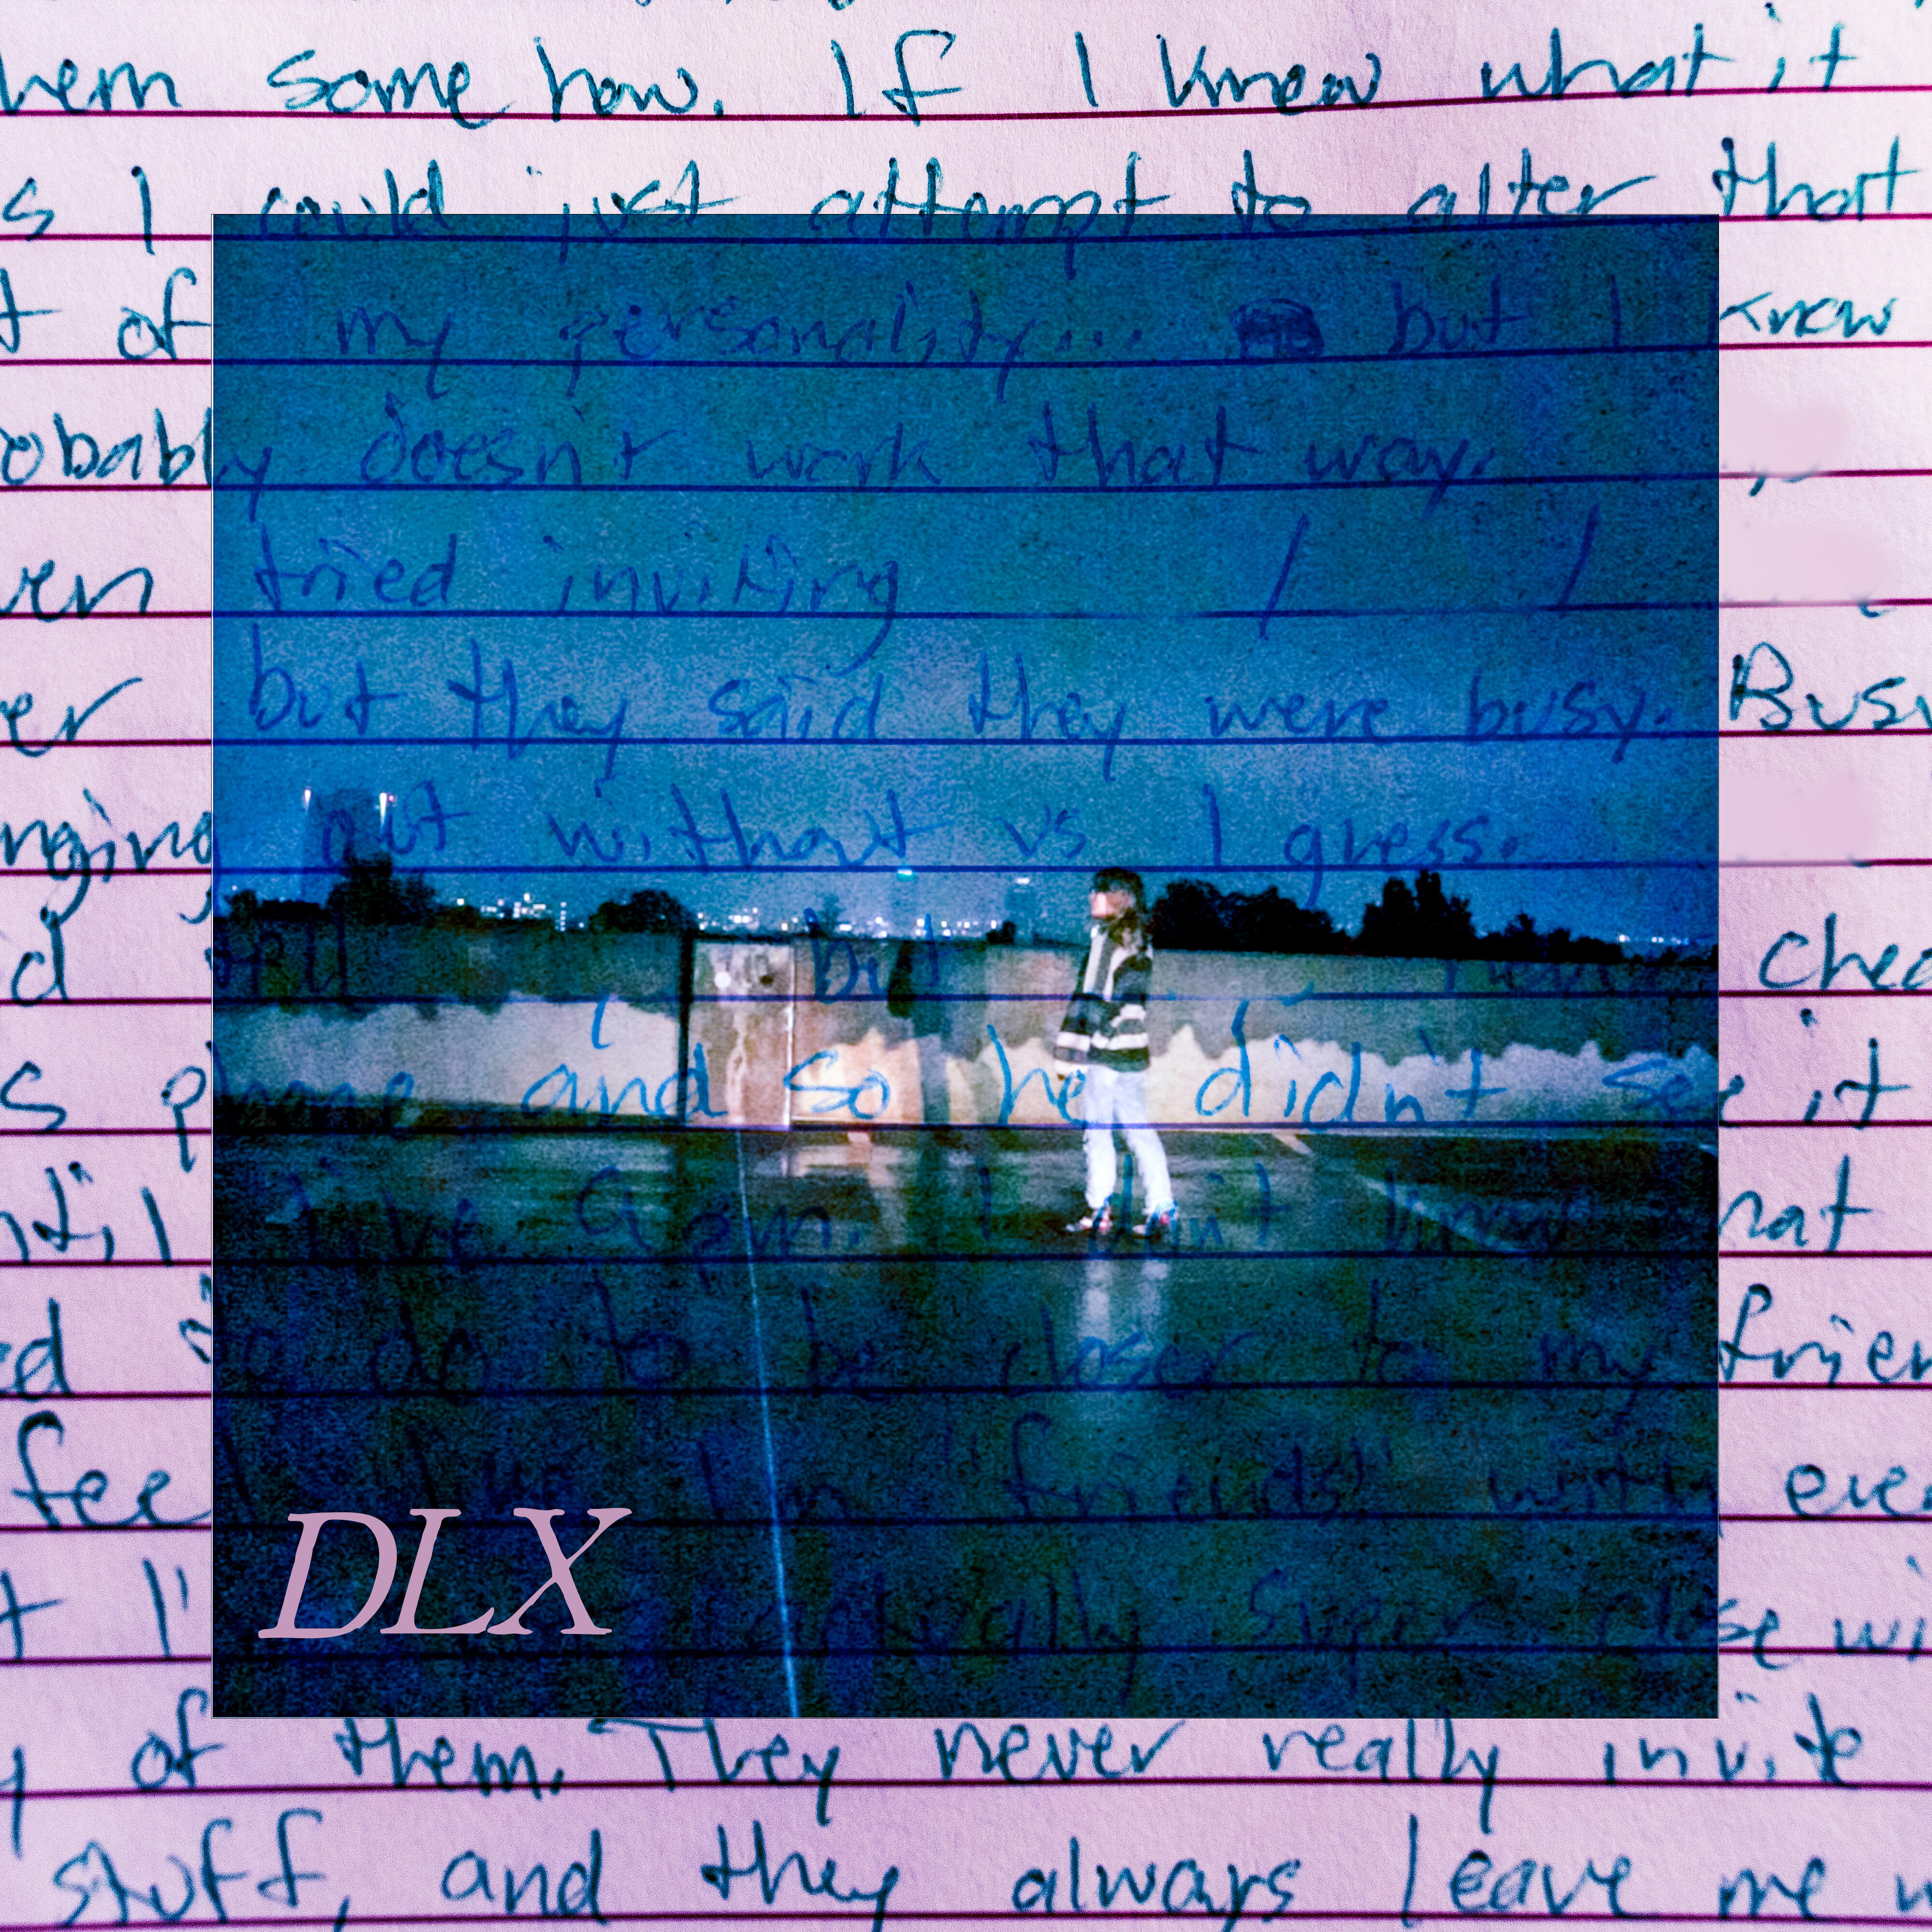 hem some how. If I knew what it
s I could just attempt to alter that
t of my personality... but I know
obably doesn't work that way.
ven tried inviting / /
er but they said they were busy. Busy
nging out without us I guess.
d tell but chec
s phone and so he didn't see it
ntil like 9 pm. I don't know hat
ed do to be closer to my frien
feel like I'm "friends" with eve
t I' actually super close wi
y of them. They never really invite
stuff, and they always leave me
DLX